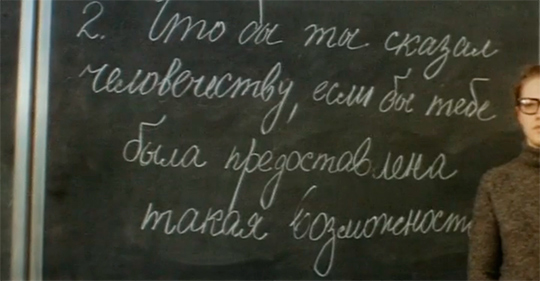 2. Что бы ты сказал
человечеству, если бы тебе
была предоставлена
такая возможность